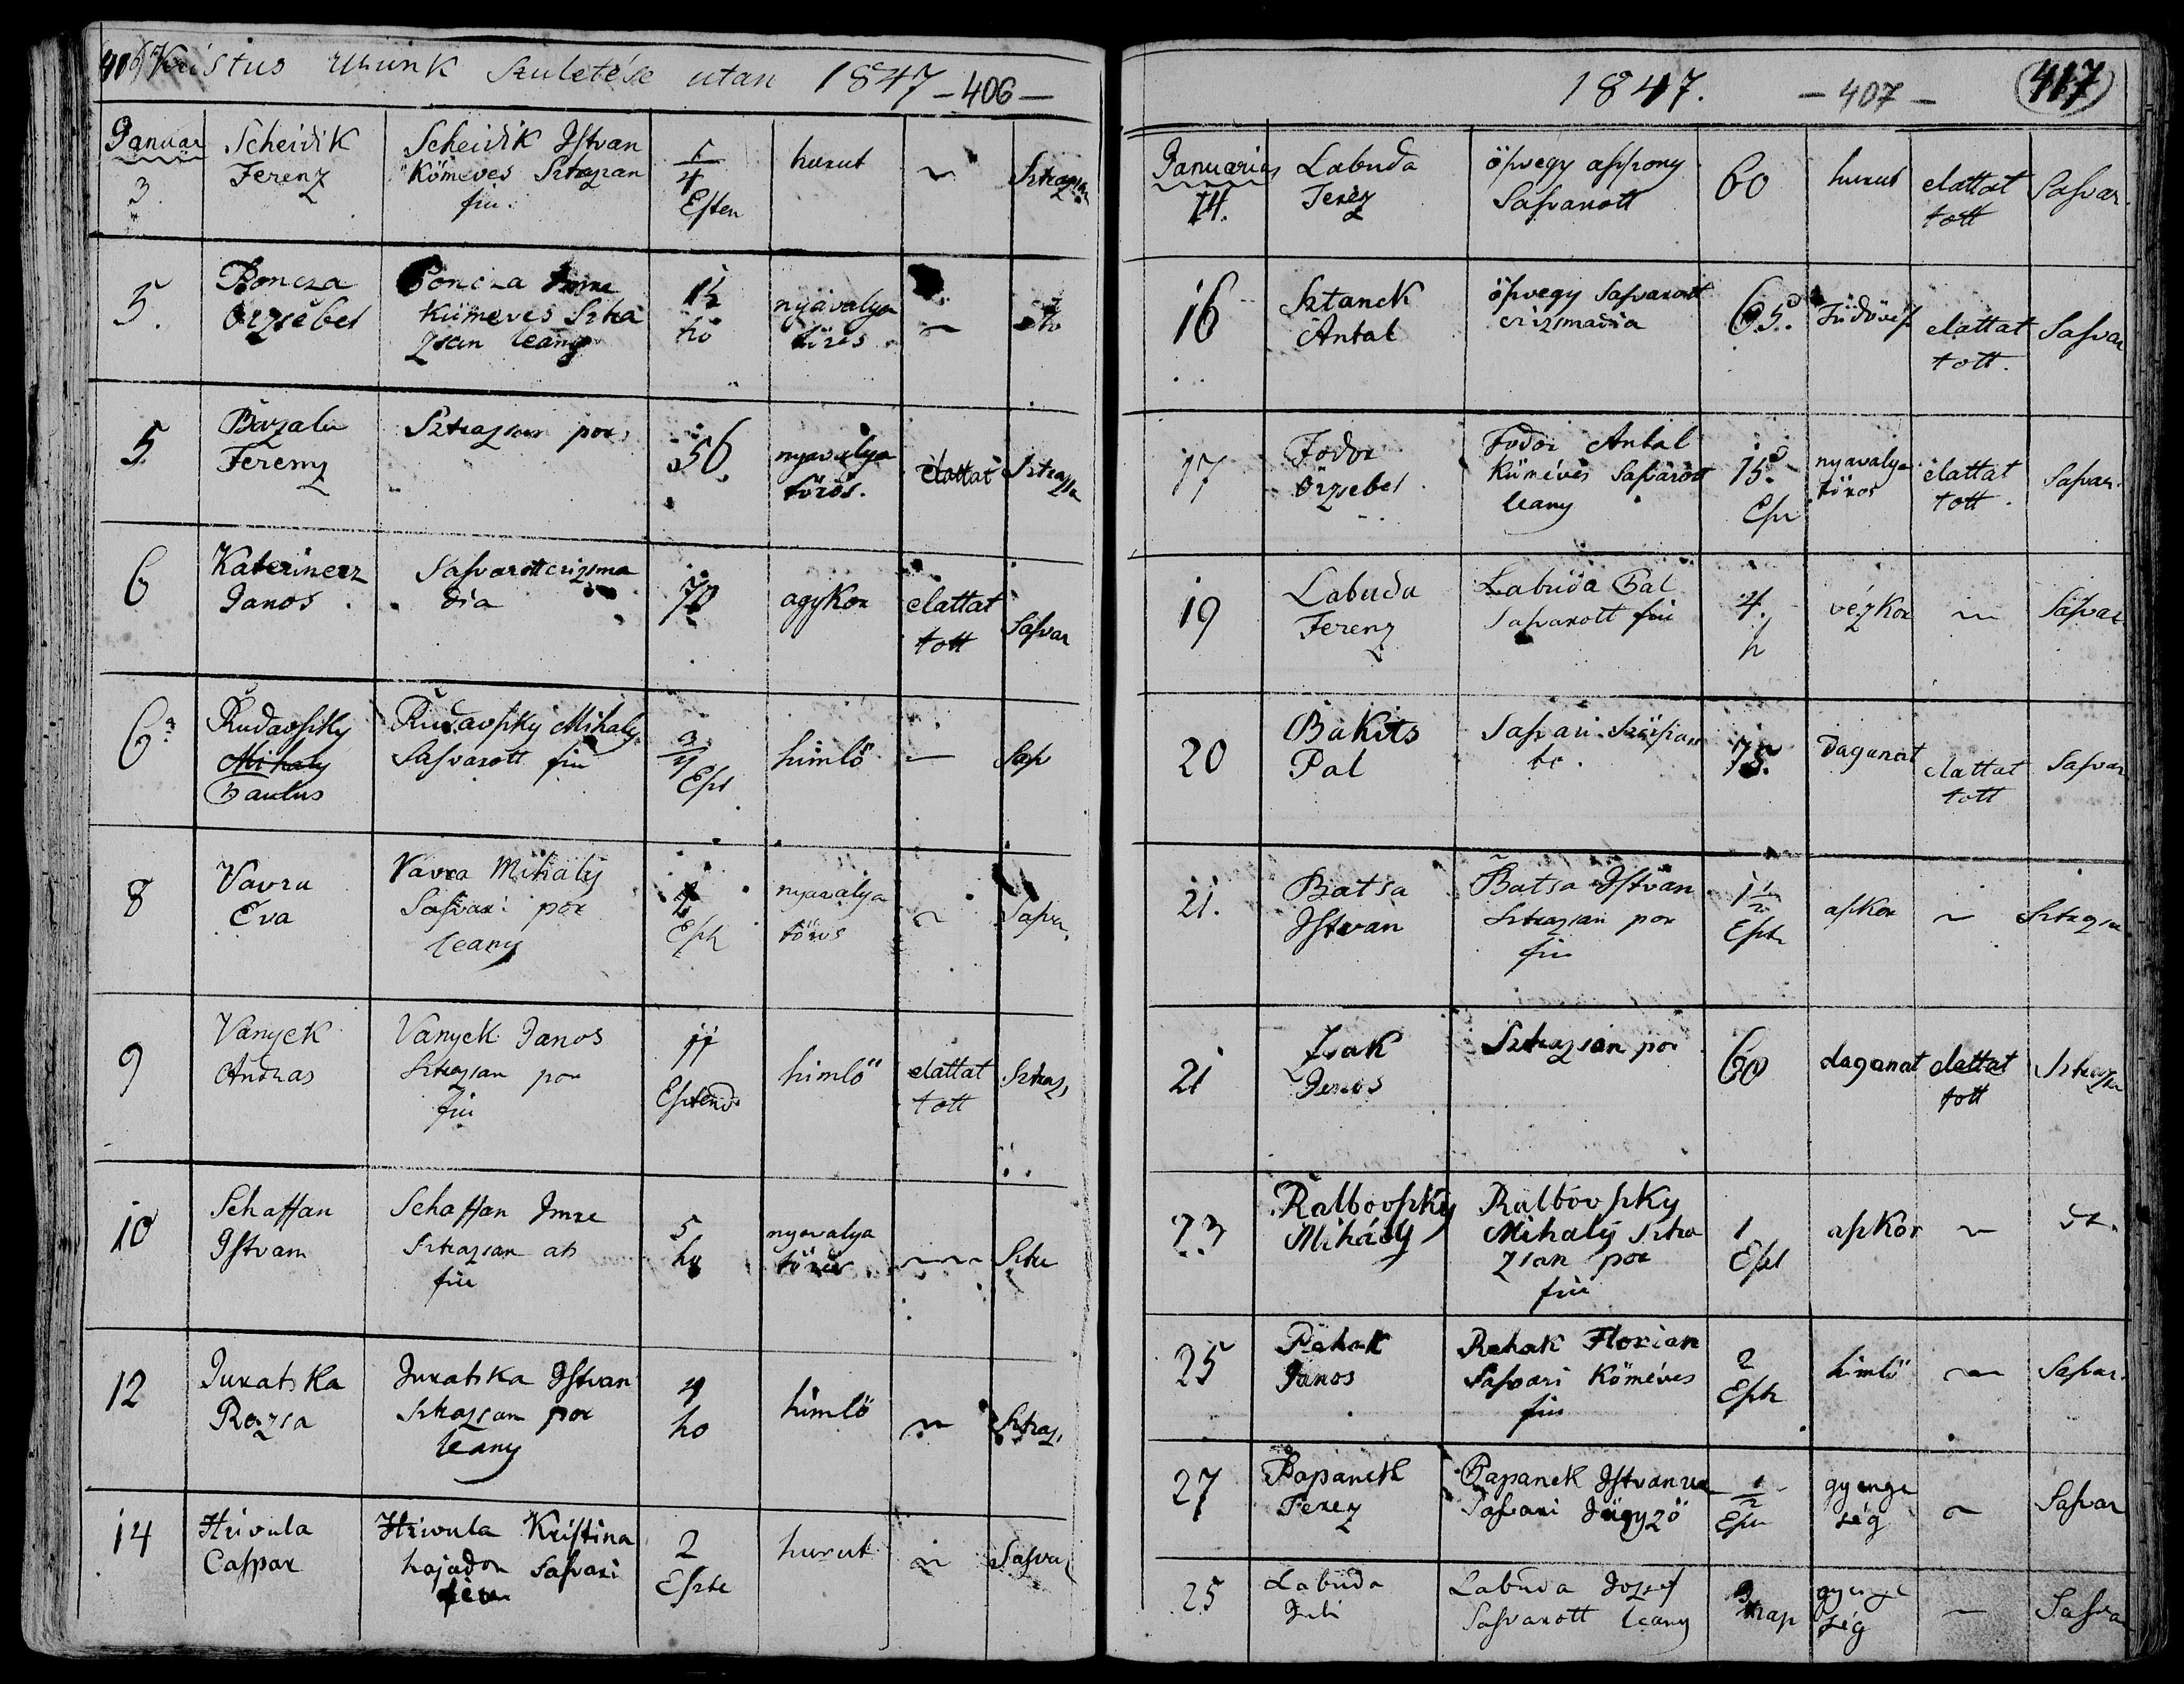 Kristus Urunk Születése utan 1847 - 406 -
Januar
3
Scheidik
Ferenz
Scheidik Istvan
Kömeves Sztrazsan
fiu
Eszten
hurut
~
5.
Boncza
Orzsébet
Boncza Imre
Kümeves Sztra
zsan leany
1½
hó
nyavalya
törés
~
5
Ferenz
Sztrazsan por
56
nyavalya
törös.
élattat
Sztrazsa
6
Katerinecz
Janos
Sasvarott csizma
dia
agykor
elattat
tott
Sasvar
6
Rudavszky
Mihaly
Paulus
Rudavszky Mihaly
Sasvarott fiu
3/4
Eszt
himlö
—
Sasv
8
Vavra
Eva
Vavra Mihaly
Sasvari por
leany
Eszt
nyavalya
törös
~
Sasva
9
Vanyek
Andras
Vanyek Janos
Sztrazsan por
fiu
11
Esztend
himlö
elattat
tott
Sztrazs
10
Schaffan
Istvam
Schaffan Imre
Sztrazsan
fiu
5
ho
nyavalya
törés
~~
Sztra
12
Juratska
Rozsa
Juratska Istvan
Sztrazsan por
leany
ho
himlö
~
Sztrazs
14
Hrivula
Caspar
Hrivula Kristina
hajadon Sasvari
2
Eszte
hurut
~
Sasvar
1847. - 407 - 417
Januarius
14.
Labuda
Terez
özvegy asszony
Sasvarott
60
hurut
elattat
tott
Sasvar
16
Sztanek
Antal
özvegy Sasvarott
csizmadia
65
Tüdövész
elattat
tott.
Sasvar
17
Fodor
Örzsebet
Fodor Antal
Küméves Sasvarott
leany
15
Esz
nyavalya
törös
elattat
tott.
Sasvar
19
Labuda
Ferenz
Labuda Pal
Sasvarott fiu
4.
h
vézkor
~
Sasvar
20
Bakits
Pal
Sasvari
75.
daganat
elattat
tott
Sasvar
21.
Batsa
Istvan
Batsa Istvan
Sztrazsan por
fiu
1½
Eszt
aszkor
~
Sztrazsa
21
Zsak
Janos
Sztrazsan por
60
daganat
elattat
tott
Sztrazsa
23
Ralbovszky
Mihály
Ralbovszky
Mihaly Sztra
zsan por
fiu
1
Eszt
aszkor
~
Szt.
25
Rehak
Janos
Rehak Florian
Sasvari Köméves
fiu
2
Eszt
himlö
~
Sasvar
27
Papanek
Terez
Papanek Istvan
Sasvari Jegyzö
½
Esz
gyenge
ség
~
Sasvar
25
Labuda
Juli
Labuda Jozsef
Sasvarott leany
nap
gyenge
ség
~
Sasvar